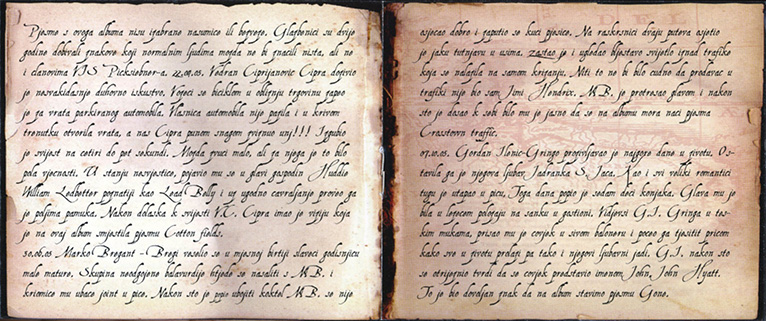 Pjesme s ovoga albuma nisu izabrane nasumice ili bezvezo. Glazbenici su dvije
godine dobivali znakove koji normalnim ljudima mozda ne bi znacili nista, ali ne
i clanovima VIS Picksiebner-a. 22.09.03. Vedran Ciprijanovic Cipra dozivio
je nesvakidasnje duhovno iskustvo. Vozeci se biciklom u obliznju trgovinu zapeo
je za vrata parkiranog automobila. Vlasnica automobila nije pazila i u krivom
trenutku otvorila vrata, a nas Cipra punom snagom zviznuo unj!!! Izgubio
je svijest na cetiri do pet sekundi. Mozda zvuci malo, ali za njega je to bilo
pola vjecnosti. U stanju nesvjestice, pojavio mu se u glavi gospodin Huddie
William Ledbetter poznatiji kao Lead Belly i uz ugodno cavrljanje proveo ga
je poljima pamuka. Nakon dolaska k svijesti V.C. Cipra imao je viziju koja
je na ovaj album smjestila pjesmu Cotton fields.
30.08.03 Marko Bregant - Bregi veselio se u mjesnoj birtiji slaveci godisnjicu
male mature. Skupina neodgojene balavurdije htjede se nasaliti s M.B. i
kriomice mu ubace joint u pice. Nakon sto je popio ubojiti koktel M.B. se nije
osjecao dobro i zaputio se kuci pjesice. Na raskrsnici dvaju puteva osjetio
je jaku tutnjavu u usima. zastao je i ugledao bljestavo svijetlo iznad trafike
koja se nalazila na samom krizanju. Niti to ne bi bilo cudno da prodavac u
trafiki nije bio sam Jimi Hendrix. M.B. je protresao glavom i nakon
sto je dosao k sebi bilo mu je jasno da se na albumu mora naci pjesma
Crosstown traffic.
07.10.03. Gordan Ilenic-Gringo prozivljavao je najgore dane u zivotu. Os-
tavila ga je njegova ljubav Jadranka S. Jaca. Kao i svi veliki romantici
tugu je utapao u picu. Toga dana popio je sedam deci konjaka. Glava mu je
bila u lezecem polozaju na sanku u gostioni. Vidjevsi G.I. Gringa u tes-
kim mukama, prisao mu je covjek u sivom baloneru i poceo ga tjesiti pricom
kako sve u zivotu prolazi pa tako i njegovi ljubavni jadi. G.I. nakon sto
se otrijeznio tvrdi da se covjek predstavio imenom John, John Hyatt.
To je bio dovoljan znak da na album stavimo pjesmu Gone.